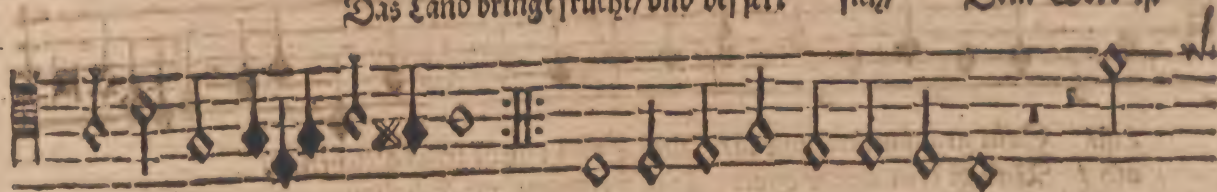 Das Land bringt frucht/ vnd bessert sich/ Dein Wort ist